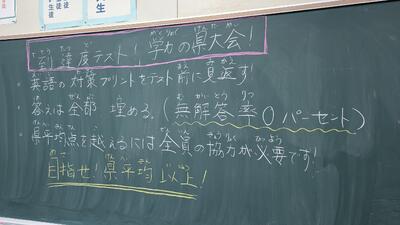 到達度テスト！学力の県大会！
・英語の対策プリントをテスト前に見返す！
・答えは全部埋める。(無解答率0パーセント)
・県平均点を越えるには全員の協力が必要です！
目指せ！県平均以上！